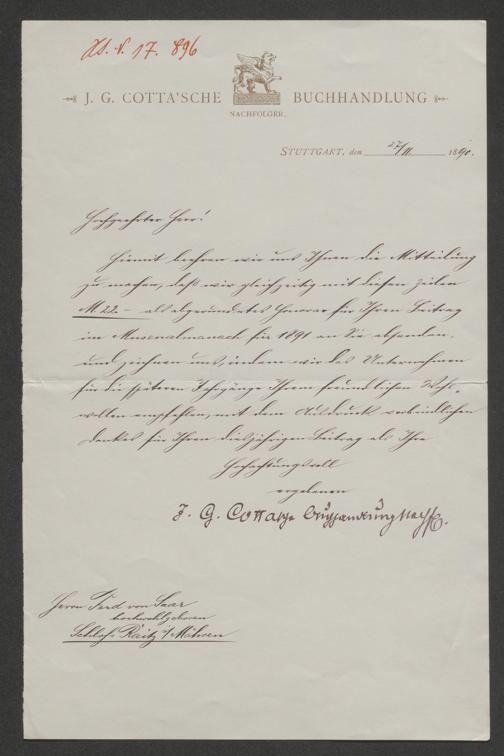 H.I.N. 17.896
J. G. COTTA'SCHE BUCHHANDLUNG
NACHFOLGER.
STUTTGART, den 27/11 1890.
Hochgeehrter Herr!
Hiermit beehren wir uns Ihnen die Mitteilung
zu machen, daß wir gleichzeitig mit diesen Zeilen
M. 22.– als abgerundetes Honorar für Ihren Beitrag
im Musenalmanach für 1891 an Sie absenden,
und zeichnen uns, indem wir das Unternehmen
für die späteren Jahrgänge Ihrem freundlichen Wohl-
wollen empfehlen, mit dem Ausdruck verbindlichen
Dankes für Ihren diesjährigen Beitrag als Ihre
Hochachtungsvoll
ergebenen
J. G. Cotta'sche Buchhandlung Nachf.
Herrn Ferd von Saar
hochwohlgeboren
Schloss Raitz i/Mähren